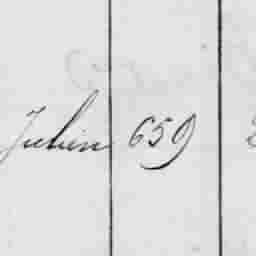 Julien 659